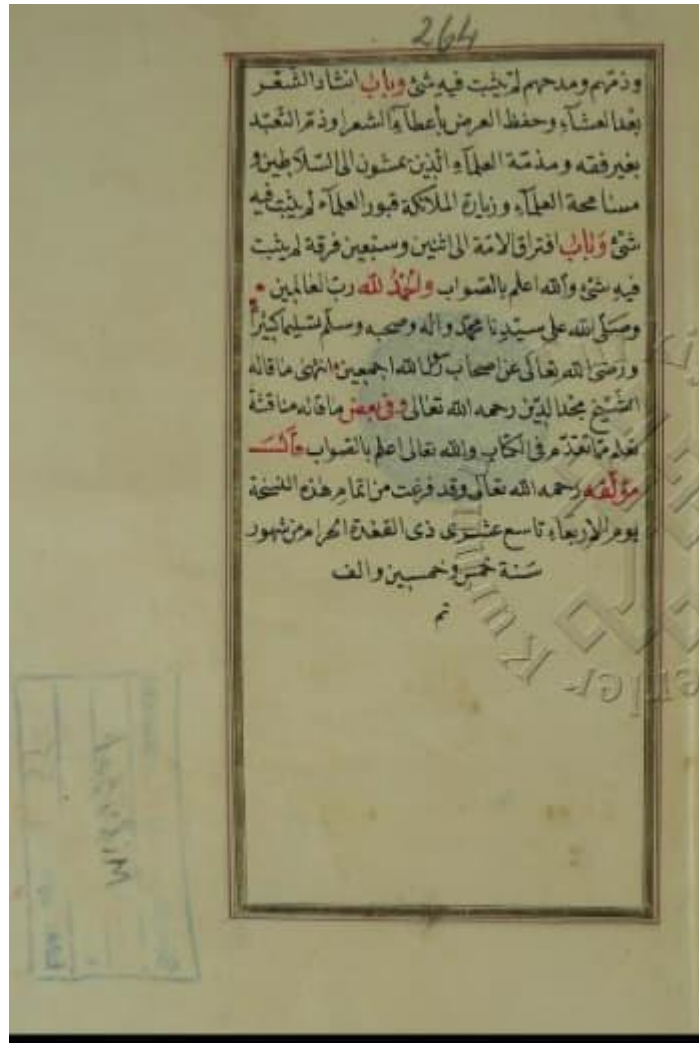 264
وذمهم ومدحهم لم يثبت فيه شئ وباب انشاد الشعر
بعد العشاء وحفظ العرض بأعطاء الشعرا وذم التعبد
بغير فقه ومذمة العلماء الذين يمشون الى السلاطين و
مسامحة العلماء وزيارة الملائكة قبور العلماء لم يثبت فيه
شئ وباب افتراق الامة الى اثنين وسبعين فرقة لم يثبت
فيه شئ والله اعلم بالصواب والحمد لله رب العالمين
وصلى الله على سيدنا محمد واله وصحبه وسلم تسليما كثيرا
ورضى الله تعالى عن اصحاب رسول الله اجمعين انتهى ما قاله
الشيخ مجد الدين رحمه الله تعالى وفى بعض ما قاله مناقشة
تعلم مما تقدم فى الكتاب والله تعالى اعلم بالصواب قال
مؤلفه رحمه الله تعالى وقد فرغت من اتمام هذه النسخة
يوم الاربعاء تاسع عشرى ذى القعدة الحرام من شهور
سنة خمس وخمسين والف
تم